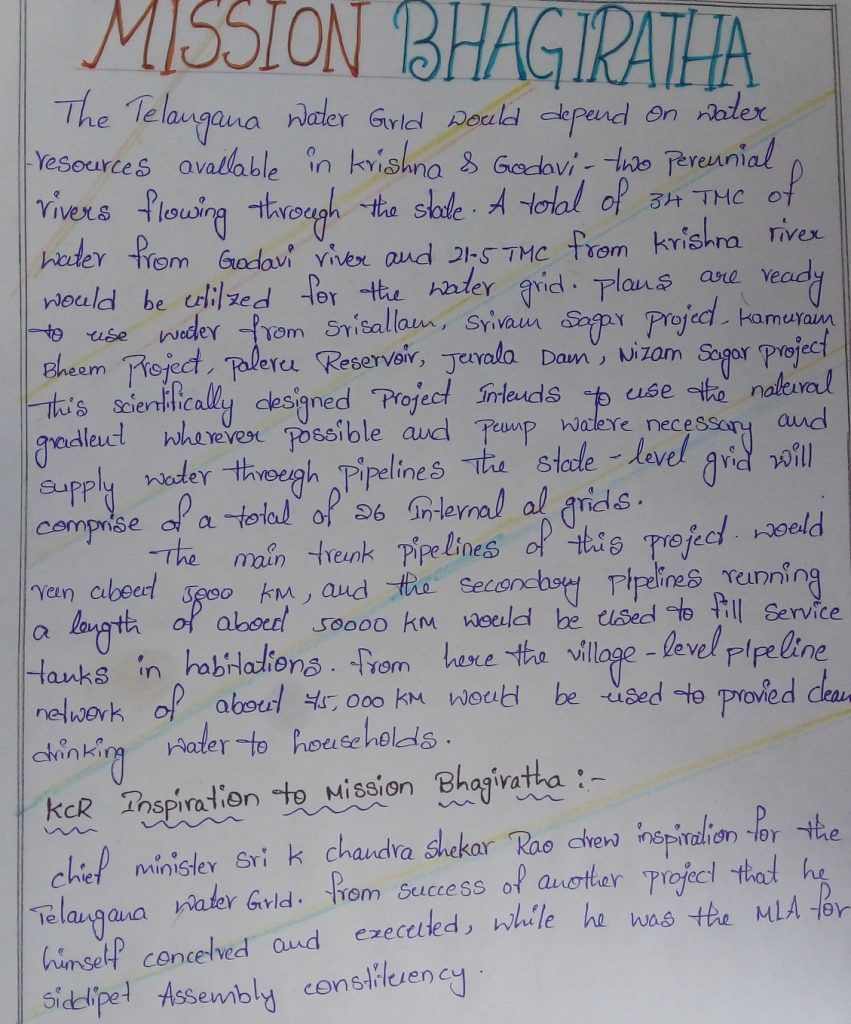 MISSION BHAGIRATHA
The Telangana Water Grid would depend on water
resources available in Krishna & Godavi - two Perennial
rivers flowing through the state. A total of 34 TMC of
water from Godavi river and 21.5 TMC from Krishna river
would be utilzed for the water grid. plans are ready
to use water from Srisallam, Srivam Sagar project. Kamuram
Bheem Project, Paleru Reservoir, Jurala Dam, Nizam Sagar project
This scientifically designed Project Intends to use the natural
gradient wherever possible and pump watere necessary and
supply water through pipelines The state - level grid will
comprise of a total of 26 Internal al grids.
The main trunk pipelines of this project. would
run about 5000 KM, and the secondary pipelines running
a length of about 50000 KM would be used to fill service
tanks in habitations. from here the village - level pipeline
network of about 75,000 KM would be used to provied clean
drinking water to households.
KCR Inspiration to Mission Bhagiratha :-
chief minister Sri K chandra Shekar Rao drew inspiration for the
Telangana water Grid. from success of another project that he
himself conceived and executed, while he was the MLA for
Siddipet Assembly constituency.